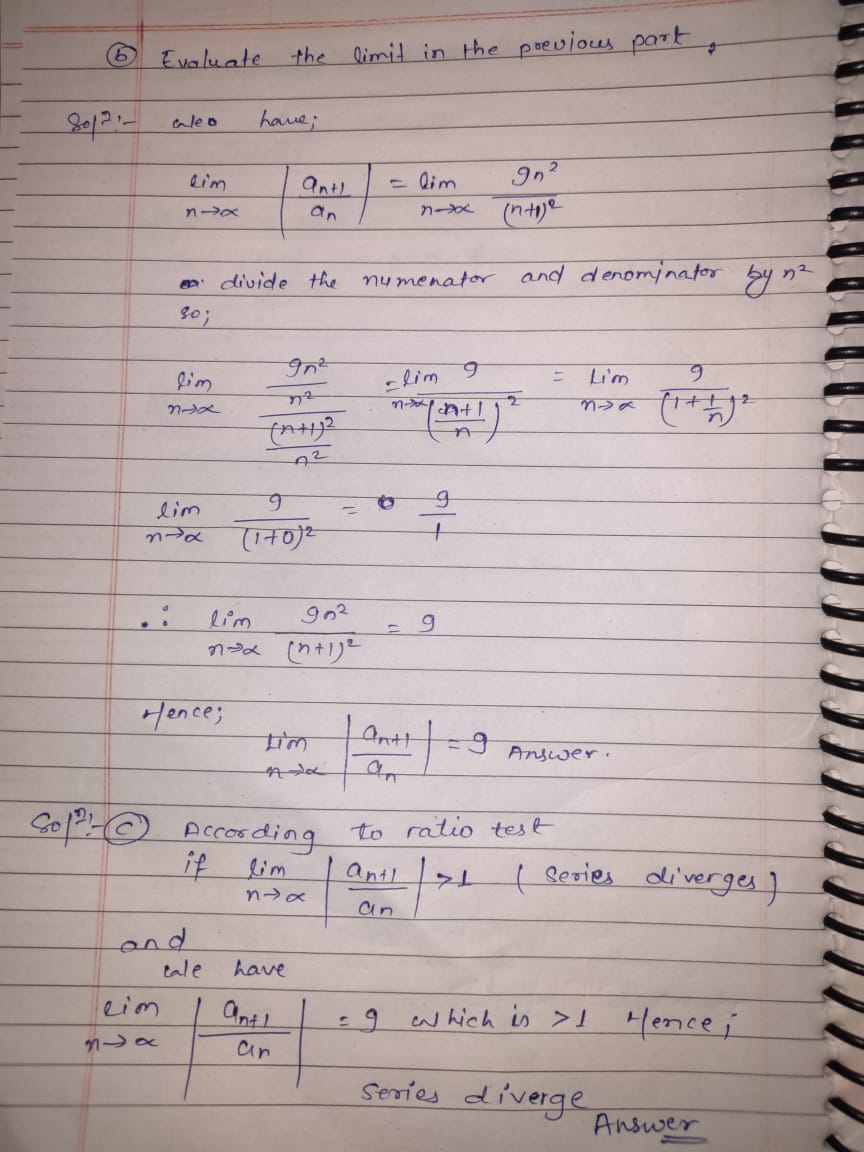 (b) Evaluate the limit in the previous part,
Solⁿ:- we have;
lim n→∝ | aₙ₊₁ / aₙ | = lim n→∝ 9n² / (n+1)²
divide the numenator and denominator by n²
so;
lim n→∝ (9n² / n²) / ((n+1)² / n²) = lim n→∝ 9 / ((n+1) / n)² = Lim n→∝ 9 / (1 + 1/n)²
lim n→∝ 9 / (1+0)² = 9 / 1
∴ lim n→∝ 9n² / (n+1)² = 9
Hence;
Lim n→∝ | aₙ₊₁ / aₙ | = 9 Answer.
Solⁿ:- (c) According to ratio test
if lim n→∝ | aₙ₊₁ / aₙ | >1 ( Series diverges)
and
we have
lim n→∝ | aₙ₊₁ / aₙ | = 9 which is >1 Hence;
Series diverge
Answer